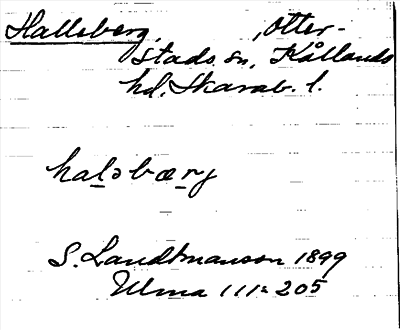 Halleberg, Otter-
stads sn, Kållands
hd, Skarab. l.
haləbærg
S. Landtmanson 1899
Ulma 111:205